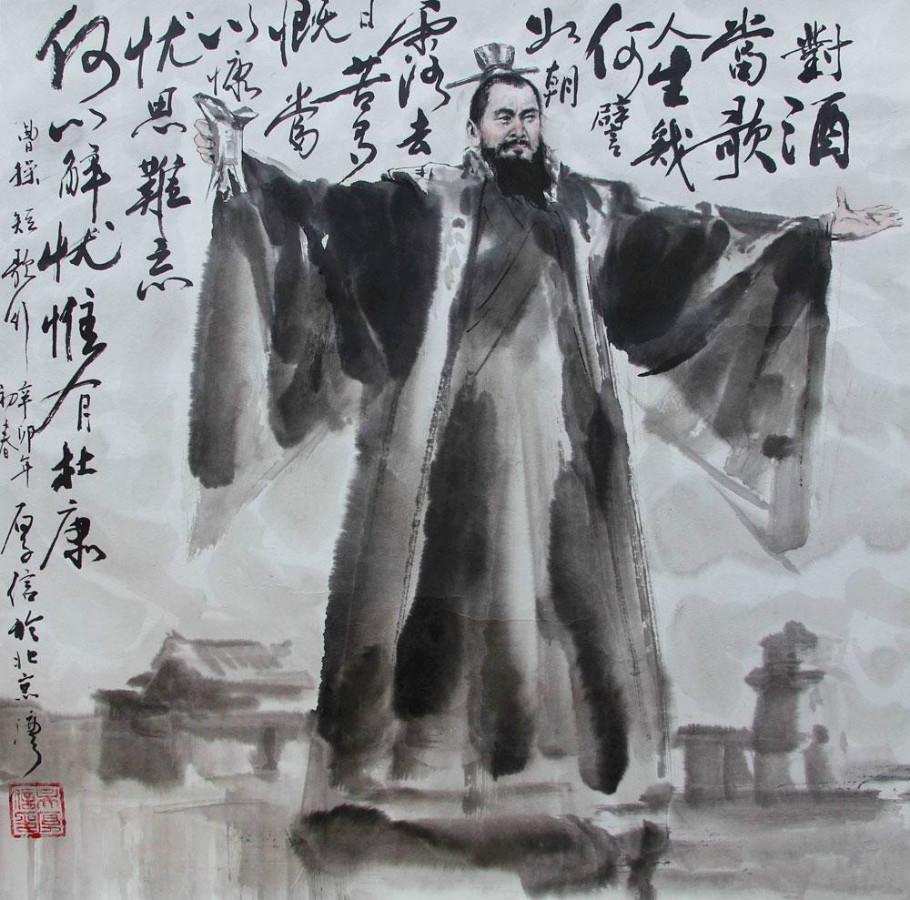 對酒
當歌
人生幾
何譬
如朝
露去
日苦多
慨當
以慷
忧思難忘
何以解忧惟有杜康
曹操短歌行辛卯年
初春
厚信於北京湾